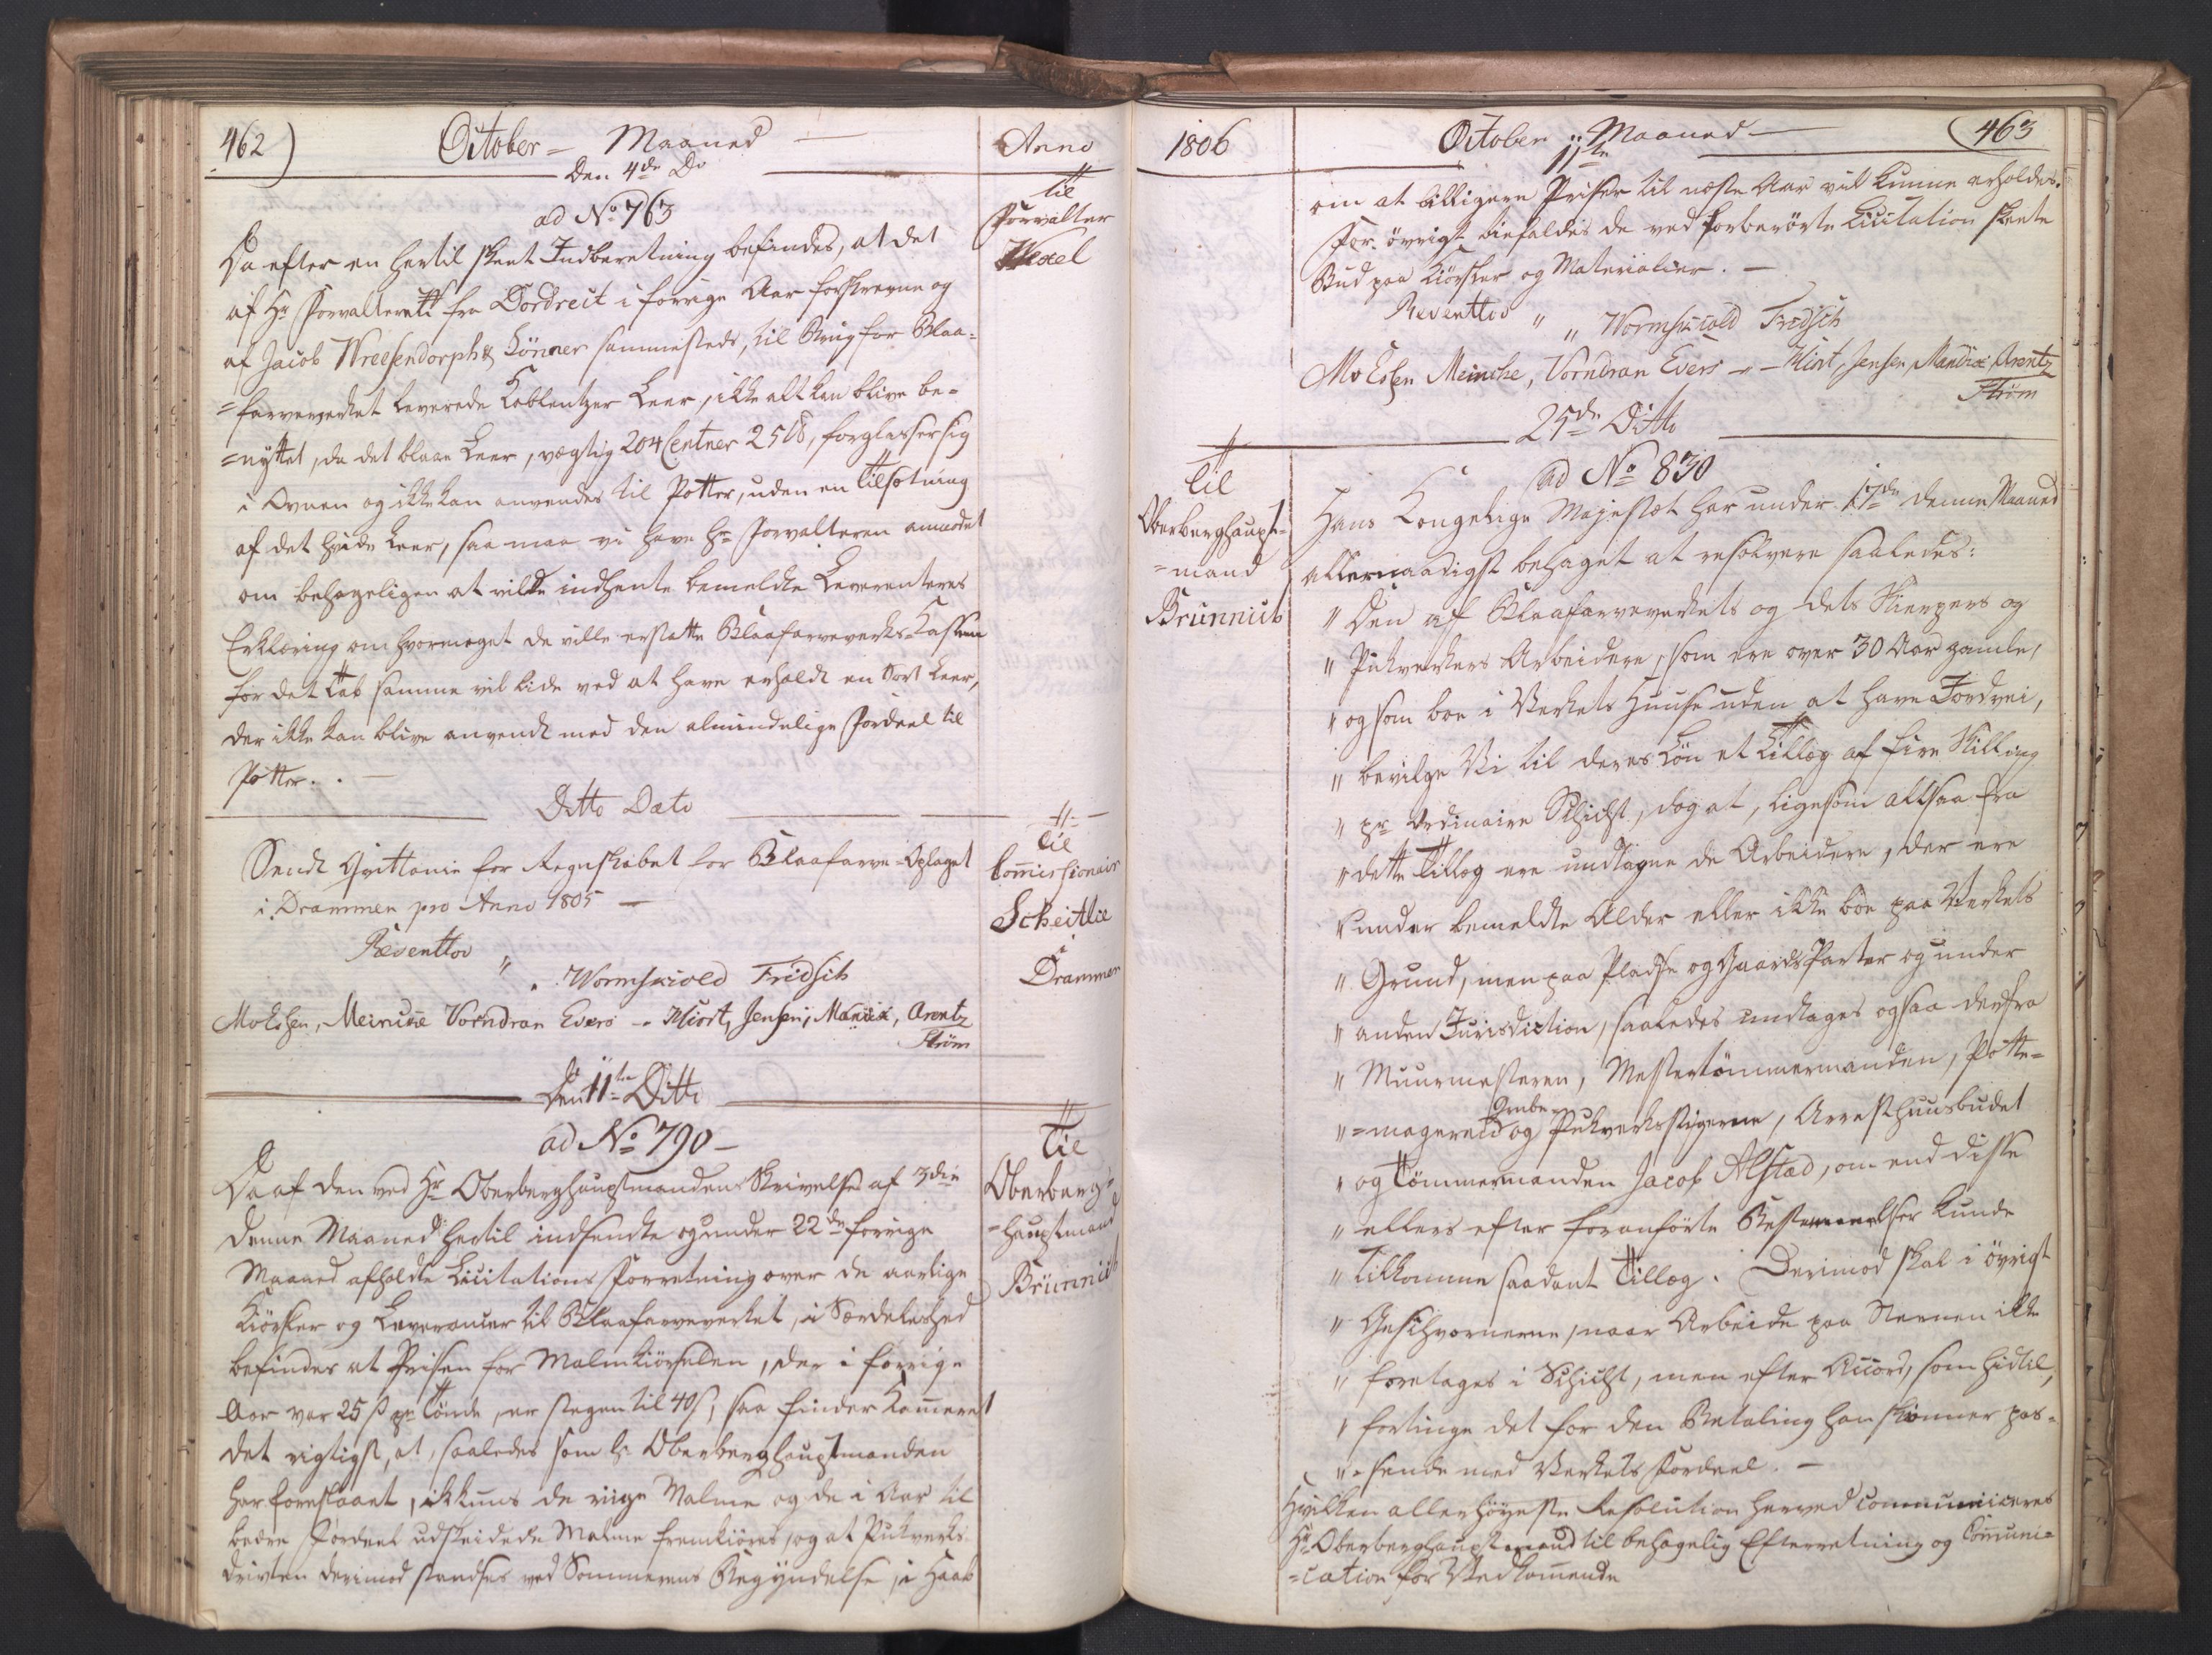 462)
October - Maaned
Anno
Den 4de Do
ad No 763
til
Forvalter
Wexel
Da efter en hertil skeet Indberetning befindes, at det
af Hr Forvalteren fra Dordrect i forrige Aar forskrevne og
af Jacob Vreesendorph & Sönner sammesteds, til Brug for Blaa-
=farveverket leverede Koblentzer Leer, ikke alt kan blive be-
=nyttet, da det blaae Leer, vegtig 204 Centner 25 ℔, forglasser sig
i Ovnen og ikke kan anvendes til Potter, uden en Tilsetning
af det hvide Leer, saa maa vi have Hr Forvalteren anmodet
om behageligen at vilde indhente bemeldte Leverenteres
Erklæring om hvormeget de ville erstatte Blaafarveverks-Kassen
for det Tab samme vil lide ved at have erholdt en Sort Leer,
der ikke kan blive anvendt med den almindelige Fordeel til
Potter. . —
Ditto Dato
til
Commissionair
Scheitlie
i
Drammen
Sendt Qvittance for Regnskabet for Blaafarve-Oplaget
i Drammen pro Anno 1805 —
Reventlov
" " Wormskiold Fridsch
Moessen, Meincke Vorndran Evers - Hiort, Jensen, Mandix, Arentz
Strøm
Den 11te Ditto
ad No 790 -
Til
Oberberg=
=hauptmand
Brünnich
Da af den ved Hr Oberberghauptmandens Skrivelse af 3die
denne Maaned hertil indsendte og under 22de forrige
Maaned afholdte Licitations Forretning over de aarlige
Kiörsler og Leverancer til Blaafarveverket, i Særdeleshed
befindes at Prisen for Malmkiörselen, der i forrige
Aar var 25 ß pr Tönde, er stegen til 40 ß, saa finder Kammeret
det rigtigst, at, saaledes som Hr Oberberghauptmanden
har foreslaaet, ikkuns de riige Malme og de i Aar til
bedre Fordeel udskeidede Malme fremkiöres, og at Pukverks-
driften derimod standses ved Sommerens Begyndelse, i Haab
1806
October :: Maaned
(463
11te
om at billigere Priser til næste Aar vil kunne erholdes.
For övrigt biefaldes de ved forberörte Licitation skeete
Bud paa Kiörsler og Materialier. —
Reventlov " " Wormskiold Fridsch
Moessen Meincke, Vorndran Evers - Hiort, Jensen Mandix Arentz
Strøm
25de Ditto
ad No 830
til
Oberberghaupt=
=mand
Brünnich
Hans Kongelige Majestæt har under 17de denne Maaned
allernaadigst behaget at resolvere saaledes:
" Den af Blaafarveverkets og dets Skierpers og
" Pukverkers Arbeidere, som ere over 30 Aar gamle,
" og som boe i Verkets Huuse uden at have Jordvei,
" bevilge Vi til deres Løn et Tillæg af fire Skilling
" pr ordinaire Schicht, dog at, ligesom altsaa fra
" dette Tillæg ere undtagne de Arbeidere, der ere
" under bemeldte Alder eller ikke boe paa Verkets
" Grund, men paa Pladse og Gaards Parter og under
" anden Jurisdiction, saaledes undtages ogsaa derfra
" Muurmesteren, Mestertömmermanden, Potte-
Grube
" =mageren og Pukverksstigerne, Arresthuusbudet
" og Tömmermanden Jacob Alstad, om end disse
" ellers efter foranförte Bestemmelser kunde
" tilkomme saadant Tillæg. Derimod skal i övrigt
" Geschvornerne, naar Arbeide paa Steenen ikke
" foretages i Schicht, men efter Accord, som hidtil,
" fortinge det for den Betaling han skiönner pas-
" =sende med Verkets Fordeel. —
Hvilken allerhöyeste Resolution herved communiceres
Hr Oberberghauptmand til behagelig Efterretning og Communi=
=cation for Vedkommende